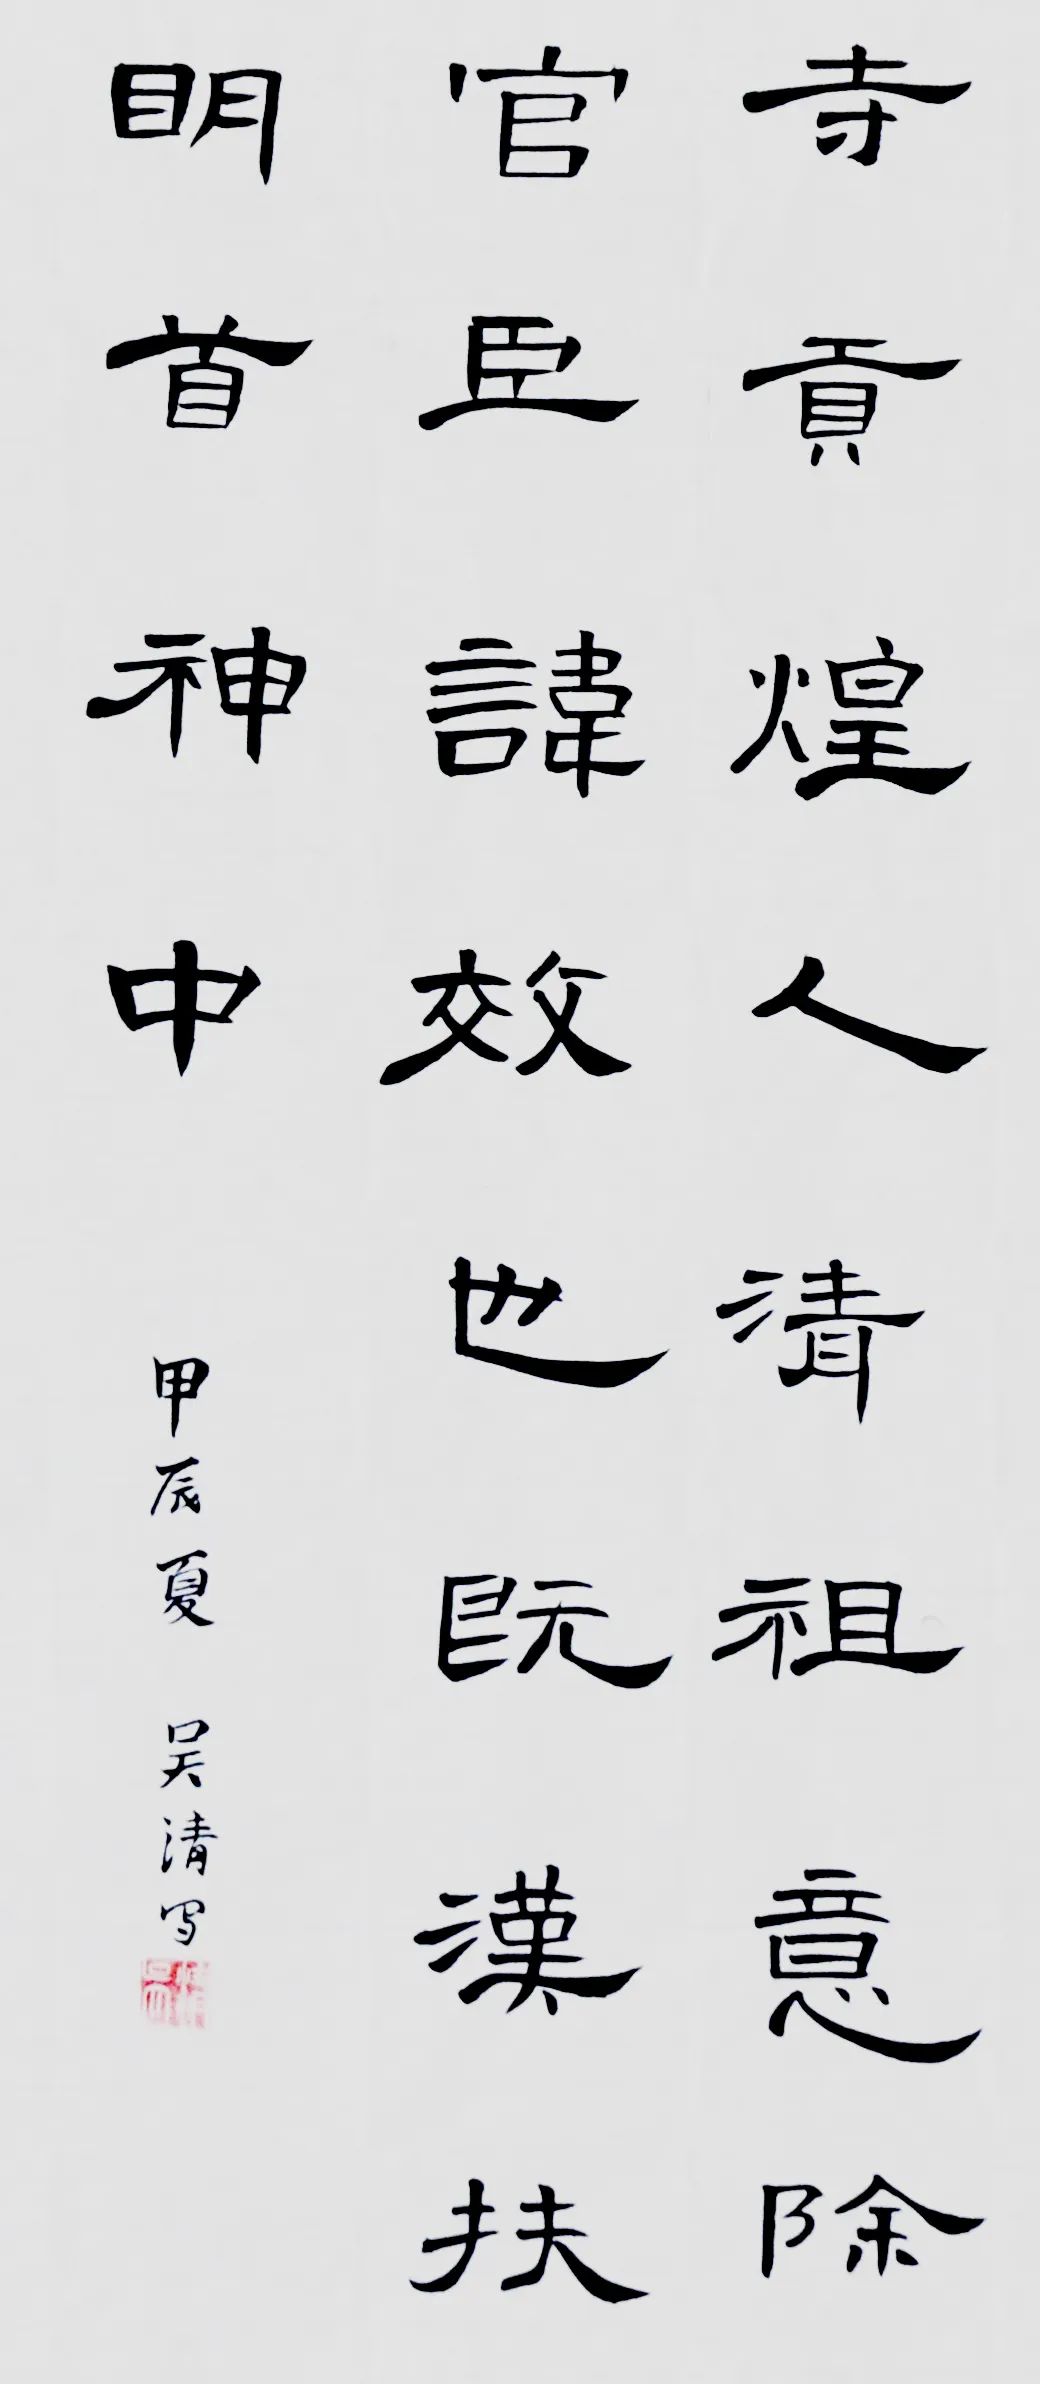 寺貢煌人清祖意除
官臣諱效也既漢扶
明首神中
甲辰夏 吴清写